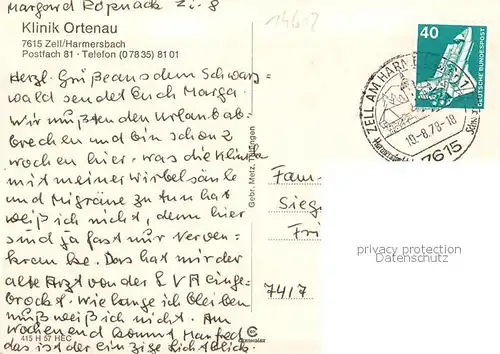 Margard Ropnack Zi. 8
Klinik Ortenau
7615 Zell/Harmersbach
Postfach 81 · Telefon (0 78 35) 81 01
Herzl. Grüße aus dem Schwarz-
wald sendet Euch Marga.
Wir mußten den Urlaub ab-
brechen und bin schon 2
Wochen hier. was die Klinik
mit meiner Wirbelsäule
und Migräne zu tun hat
weiß ich nicht, denn hier
sind ja fast nur Nerven-
kranke. Das hat mir der
alte Arzt von der LVA einge-
brockt. Wie lange ich bleiben
muß weiß ich nicht. Am
Wochenend kommt Manfred
das ist der einzige Lichtblick.
415 H 57 HEC
Gebr. Metz, Tübingen
40
DEUTSCHE BUNDESPOST
ZELL AM HARM
10.-8.78-18
7615
Fam
Sieg
Fri
7417
privacy protection